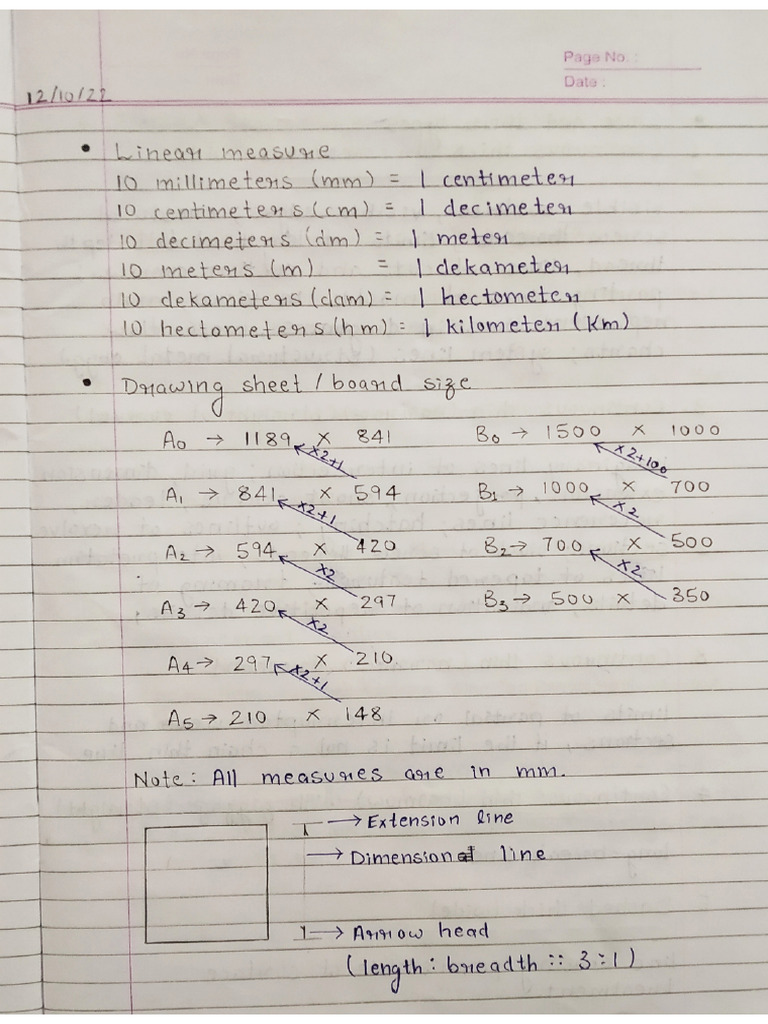 Page No. :
Date :
12/10/22
• Linear measure
10 millimeters (mm) = 1 centimeter
10 centimeters (cm) = 1 decimeter
10 decimeters (dm) = 1 meter
10 meters (m) = 1 dekameter
10 dekameters (dam) = 1 hectometer
10 hectometers (hm) = 1 kilometer (Km)
• Drawing sheet / board size
A0 → 1189 × 841 B0 → 1500 × 1000
×2+1 ×2+100
A1 → 841 × 594 B1 → 1000 × 700
×2+1 ×2
A2 → 594 × 420 B2 → 700 × 500
×2 ×2
A3 → 420 × 297 B3 → 500 × 350
×2
A4 → 297 × 210
×2+1
A5 → 210 × 148
Note: All measures are in mm.
→ Extension line
→ Dimension line
→ Arrow head
(length : breadth :: 3 : 1)